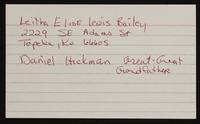 Leitha Elise Lewis Bailey
2229 SE Adams St
Topeka, Ks 66605
Daniel Hickman Great-Great
Grandfather